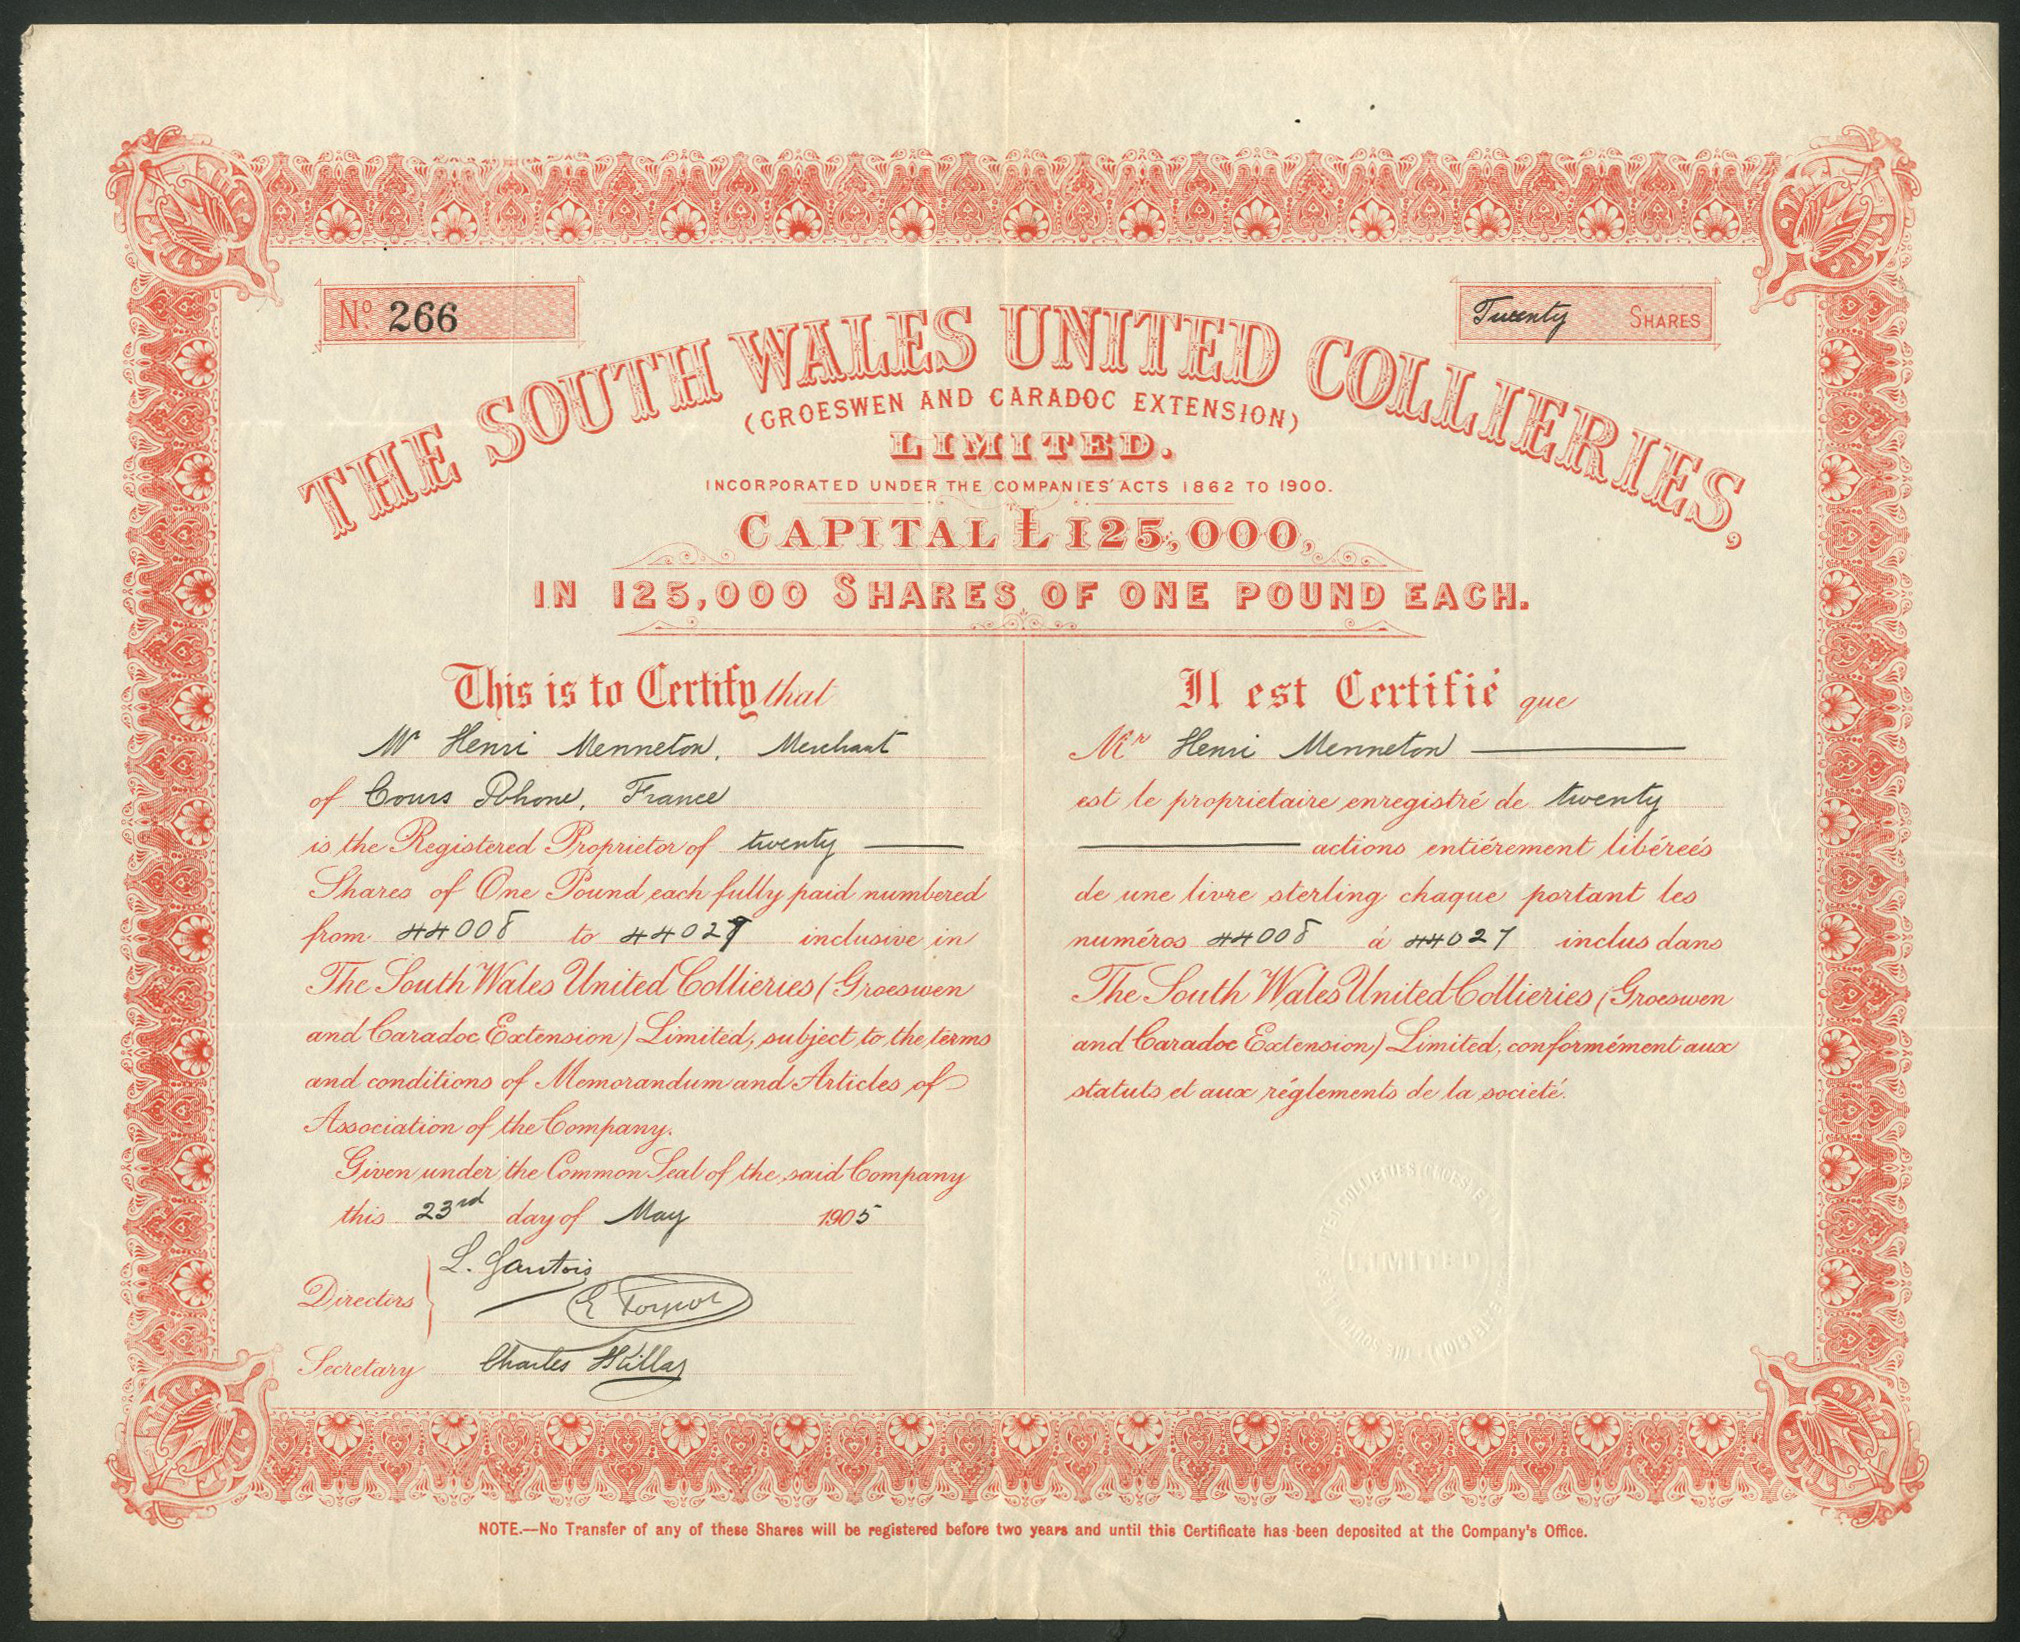 No. 266
Twenty SHARES
THE SOUTH WALES UNITED COLLIERIES,
(GROESWEN AND CARADOC EXTENSION)
LIMITED.
INCORPORATED UNDER THE COMPANIES' ACTS 1862 TO 1900.
CAPITAL £125,000,
IN 125,000 SHARES OF ONE POUND EACH.
This is to Certify that
Mr Henri Menneton, Merchant
of Cours Rhone, France
is the Registered Proprietor of twenty
Shares of One Pound each fully paid numbered
from 44008 to 44027 inclusive in
The South Wales United Collieries (Groeswen
and Caradoc Extension) Limited, subject to the terms
and conditions of Memorandum and Articles of
Association of the Company.
Given under the Common Seal of the said Company
this 23rd day of May 1905
Directors
L. Gautois
E
Secretary Charles
Il est Certifié que
Mr Henri Menneton
est le proprietaire enregistré de twenty
actions entiérement libéreés
de une livre sterling chaque portant les
numéros 44008 á 44027 inclus dans
The South Wales United Collieries (Groeswen
and Caradoc Extension) Limited, conformément aux
statuts et aux réglements de la societé.
LIMITED
NOTE.—No Transfer of any of these Shares will be registered before two years and until this Certificate has been deposited at the Company's Office.